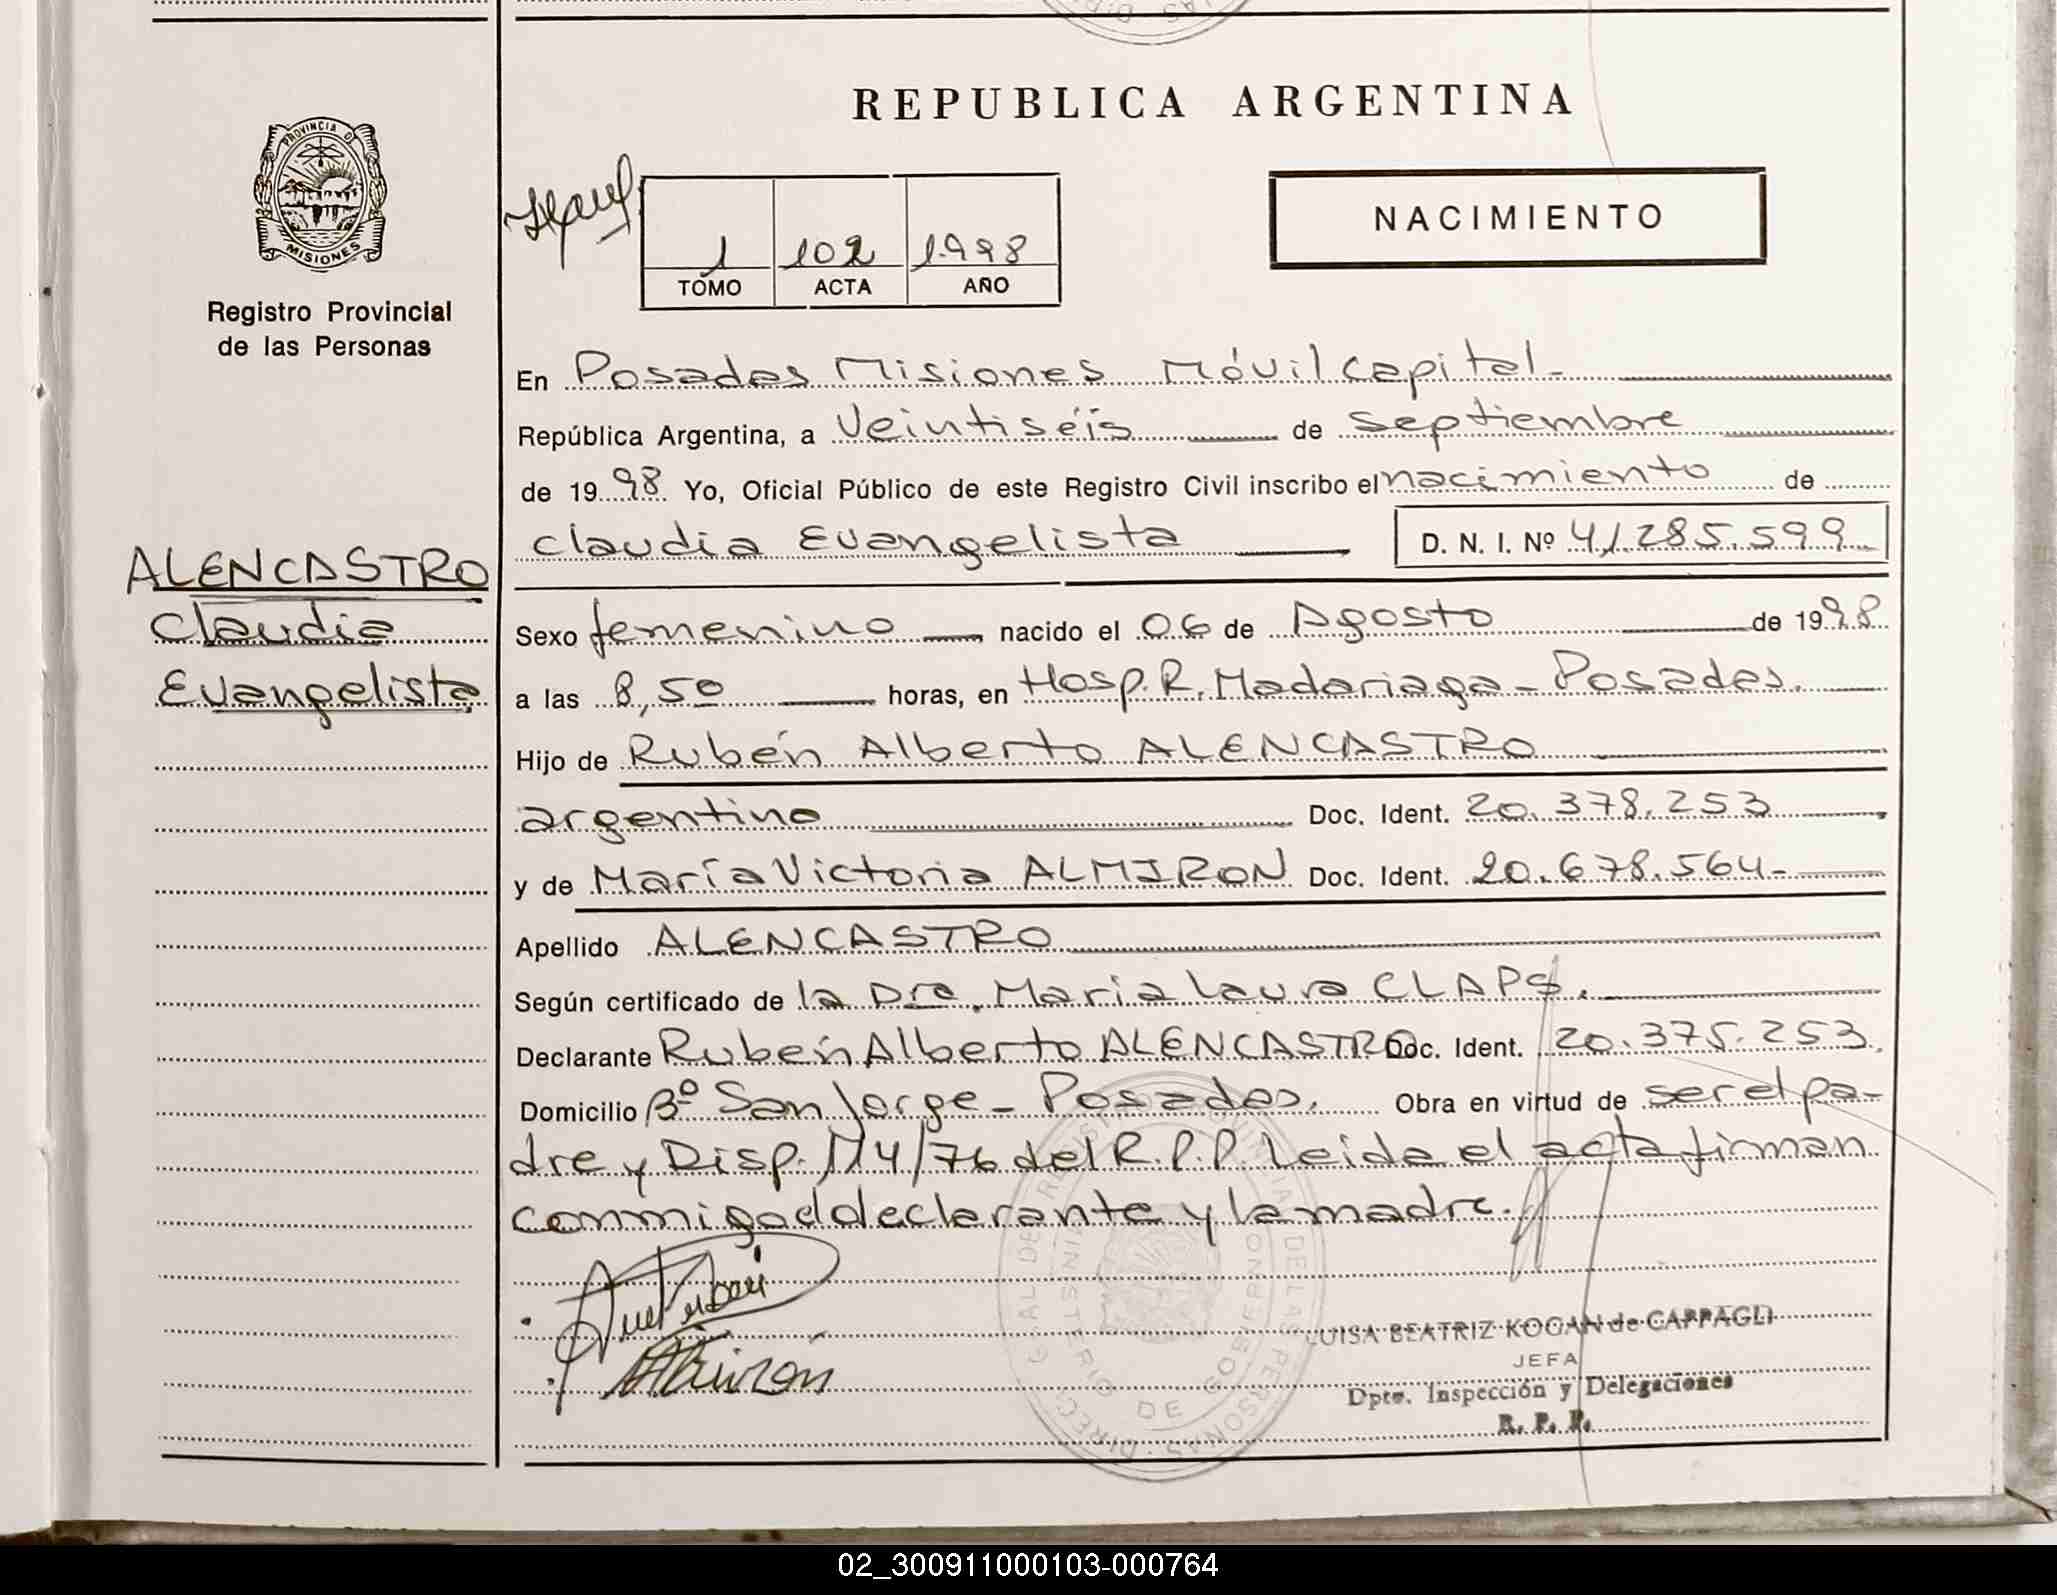 REPUBLICA ARGENTINA
PROVINCIA DE
MISIONES
Registro Provincial
de las Personas
1 102 1.998
TOMO ACTA AÑO
NACIMIENTO
En Posadas Misiones Móvil Capital.
República Argentina, a Veintiséis de Septiembre
de 1998. Yo, Oficial Público de este Registro Civil inscribo el nacimiento de
Claudia Evangelista D. N. I. Nº 41.285.599
ALENCASTRO
Claudia
Evangelista
Sexo femenino nacido el 06 de Agosto de 1998
a las 8,50 horas, en Hosp. R. Madariaga - Posadas.
Hijo de Rubén Alberto ALENCASTRO
argentino Doc. Ident. 20.378.253
y de María Victoria ALMIRON Doc. Ident. 20.678.564-
Apellido ALENCASTRO
Según certificado de la Dra. María Laura CLAPS.
Declarante Rubén Alberto ALENCASTRO Doc. Ident. 20.375.253
Domicilio Bº San Jorge - Posadas. Obra en virtud de ser el pa-
dre y Disp. 114/76 del R.P.P. Leida el acta firman
conmigo el declarante y la madre.
Almirón
LUISA BEATRIZ KOGAN de CAPPAGLI
JEFA
Dpto. Inspección y Delegaciones
R. P. P.
02_300911000103-000764